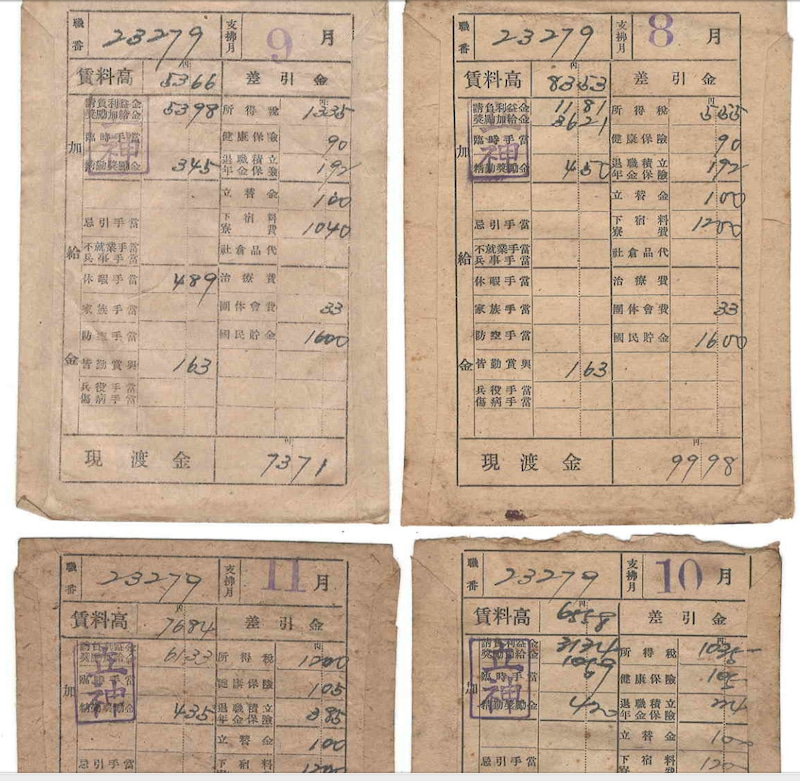 職番 23279 支拂月 9 月
賃料高 円 5366 差引金
加給金
請負利益金 獎勵加給金 5398 所得稅 円 1335
臨時手當 健康保險 90
精勤獎勵金 345 退職積立 年金保險 192
正神
立替金 100
忌引手當 下宿料 寮費 1040
不就業手當 兵事手當 社倉品代
休暇手當 489 治療費
家族手當 團体會費 33
防空手當 國民貯金 1600
皆勤賞與 163
兵役手當 傷病手當
現渡金 円 7371
職番 23279 支拂月 8 月
賃料高 円 8353 差引金
加給金
請負利益金 1181 所得稅 円 555
獎勵加給金 3621
臨時手當 健康保險 90
精勤獎勵金 450 退職積立 年金保險 192
正神
立替金 100
忌引手當 下宿料 寮費 1200
不就業手當 兵事手當 社倉品代
休暇手當 治療費
家族手當 團体會費 33
防空手當 國民貯金 1600
皆勤賞與 163
兵役手當 傷病手當
現渡金 円 9998
職番 23279 支拂月 11 月
賃料高 円 7684 差引金
加
請負利益金 獎勵加給金 6133 所得稅 円 1200
臨時手當 健康保險 105
精勤獎勵金 435 退職積立 年金保險 385
正神
立替金 100
忌引手當 下宿料 寮 1200
職番 23279 支拂月 10 月
賃料高 円 6558 差引金
加
請負利益金 3134 所得稅 円 1035
獎勵加給金 1059
臨時手當 健康保險 105
精勤獎勵金 420 退職積立 年金保險
正神
立替金 100
忌引手當 下宿料 寮 120